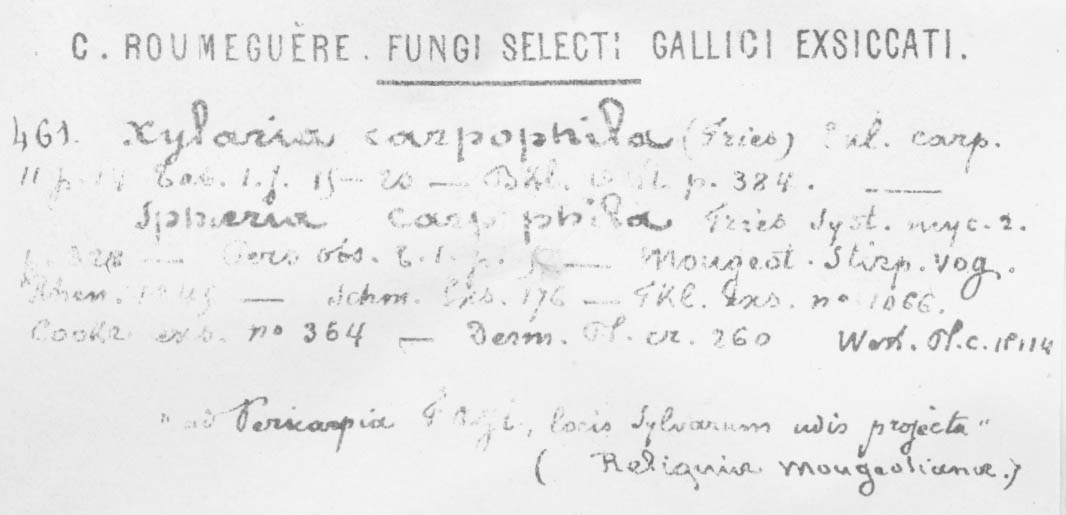 C. ROUMEGUÈRE. FUNGI SELECTI GALLICI EXSICCATI.
461. Xylaria carpophila (Fries) carp.
II p. Tab. 1. f. 15-20 — p. 384. —
Spheria carpophila Fries Syst. myc. 2.
p. 328 — Pers obs. — Mougeot. Stirp. vog.
Rhen. — Schm. Exs. 176 — FKl. Exs. nº 1066.
Cooke exs. nº 364 — Desm. Pl. cr. 260
"ad Pericarpia Fagi, locis Sylvarum udis projecta"
( Reliquiæ Mougeotianæ.)